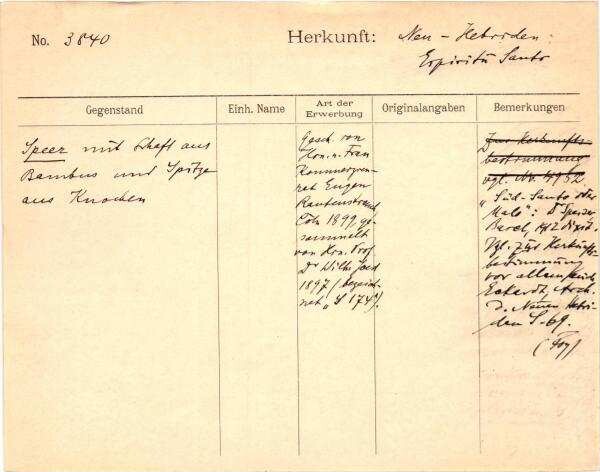 No. 3840
Herkunft: Neu-Hebriden:
Espiritu Santo
Gegenstand
Einh. Name
Art der Erwerbung
Originalangaben
Bemerkungen
Speer mit Schaft aus
Bambus und Spitze
aus Knochen
Gesch. von
Hrn. u. Frau
Kommerzien-
rat Eugen
Rautenstrauch
Cöln 1899 ge-
sammelt
von Hrn. Prof
Dr Wilh. Joest
1897 (bezeich-
net „S 174").
Zur Herkunfts-
bestimmung
vgl. Nr. 4152
„Süd-Santo oder
Malo": Dr Speiser
Basel, 1912 dixit.
Vgl. zur Herkunfts-
bestimmung
vor allem
Eckardt, Arch.
d. Neuen Hebri-
den S. 69.
(Foy)